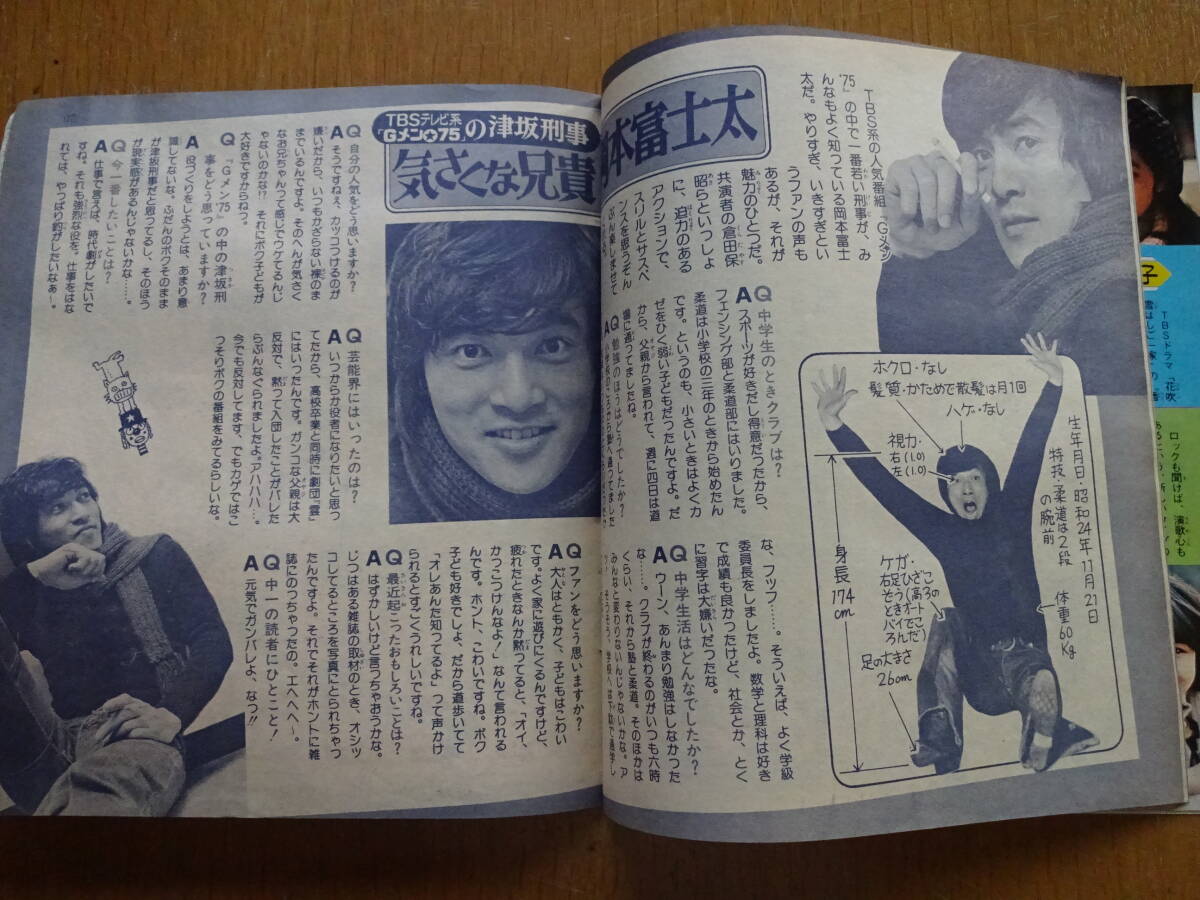 TBSテレビ系
「Gメン'75」の津坂刑事
気さくな兄貴
本富士太
TBS系の人気番組『Gメン
'75』の中で一番若い刑事が、み
んなもよく知っている岡本富士
太だ。やりすぎ、いきすぎとい
うファンの声も
あるが、それが
魅力のひとつだ。
共演者の倉田保
昭らといっしょ
に、迫力のある
アクションで、
スリルとサスペ
ンスを思うぞん
ぶん楽しませて
Q 中学生のときクラブは?
A スポーツが好きだし得意だったから、
フェンシング部と柔道部にはいりました。
柔道は小学校の三年のときから始めたん
です。というのも、小さいときはよくカ
ゼをひく弱い子どもだったんですよ。だ
から、父親から言われて、週に四日は道
場に通ってましたね。
Q 勉強のほうはどうでしたか?
A 小学校のころから塾へ通ってました
な、フッフ……。そういえば、よく学級
委員長をしましたよ。数学と理科は好き
で成績も良かったけど、社会とか、とく
に習字は大嫌いだったな。
Q 中学生活はどんなでしたか?
A ウーン、あんまり勉強はしなかった
な……。クラブが終わるのがいつも六時
くらい、それから塾と柔道。そのほかは
みんなと変わりないんじゃないかな。ア
ホクロ・なし
髪質・かためで散髪は月1回
ハゲ・なし
視力・
右(1.0)
左(1.0)
身長174cm
ケガ・
右足ひざこ
ぞう(高3の
ときオート
バイでこ
ろんだ)
足の大きさ
26cm
生年月日・昭和24年11月21日
特技・柔道は2段
の腕前
体重60Kg
Q 自分の人気をどう思いますか?
A そうですねぇ、カッコつけるのが
嫌いだから、いつもかざらない裸のま
までいるんですよ。そのへんが気さく
なお兄ちゃんって感じでウケてるんじ
ゃないのかな!? それにボク子どもが
大好きですからねっ。
Q 『Gメン'75』の中の津坂刑
事をどう思っていますか?
A 役づくりをしようとは、あまり意
識しないな。ふだんのボクそのまま
が津坂刑事だと思ってるし、そのほう
が現実感があるんじゃないかな……。
Q 今一番したいことは?
A 仕事で言えば、時代劇がしたいで
すね。それも強烈な役を。仕事をはな
れては、やっぱり釣がしたいなぁー。
Q 芸能界にはいったのは?
A いつからか役者になりたいと思っ
てたから、高校卒業と同時に劇団『雲』
にはいったんです。ガンコな父親は大
反対で、黙って入団したことがバレた
らぶんなぐられましたよ。アハハハ…。
今でも反対してます、でもカゲではこ
っそりボクの番組をみてるらしいな。
Q ファンをどう思いますか?
A 大人はともかく、子どもはこわい
です。よく家に遊びにくるんですけど、
疲れたときなんか黙ってると、「オイ、
かっこうつけんなよ!」なんて言われる
んです。ホント、こわいですね。ボク
子ども好きでしょ、だから道歩いてて
「オレあんた知ってるよ」って声かけ
られるとすごくうれしいですね。
Q 最近起こったおもしろいことは?
A はずかしいけど言っちゃおうかな。
じつはある雑誌の取材のとき、オシッ
コしてるところを写真にとられちゃっ
たんですよ。それでそれがホントに雑
誌にのっちゃったの。エヘヘヘ〜。
Q 中一の読者にひとこと!
A 元気でガンバレよ、なっ!!
子
TBSドラマ『花吹
ロックも聞けば、演歌心も